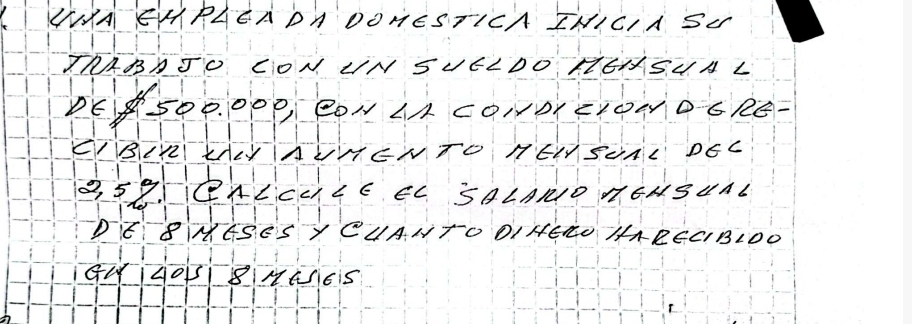 1. UNA EMPLEADA DOMESTICA INICIA SU
TRABAJO CON UN SUELDO MENSUAL
DE $500.000, CON LA CONDICION DE RE-
CIBIR UN AUMENTO MENSUAL DEL
2,5%. CALCULE EL SALARIO MENSUAL
DE 8 MESES Y CUANTO DINERO HA RECIBIDO
EN LOS 8 MESES